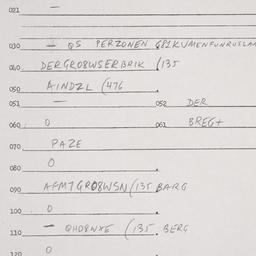 021 —
030 — Q5 PERZONEN
040 DERGRO8WSERBRIK (135
050 AINDZL (476
051 — 052 DER
060 0 061 BREG+
070 PAZE
080 0
090 AFM7GRO8WSN(135 BARG
100 0
110 — QHO8WXE (135. BERG
120 0